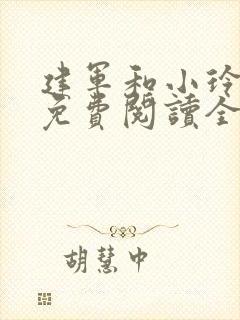 建军和小玲
免費閱讀全
胡慧中